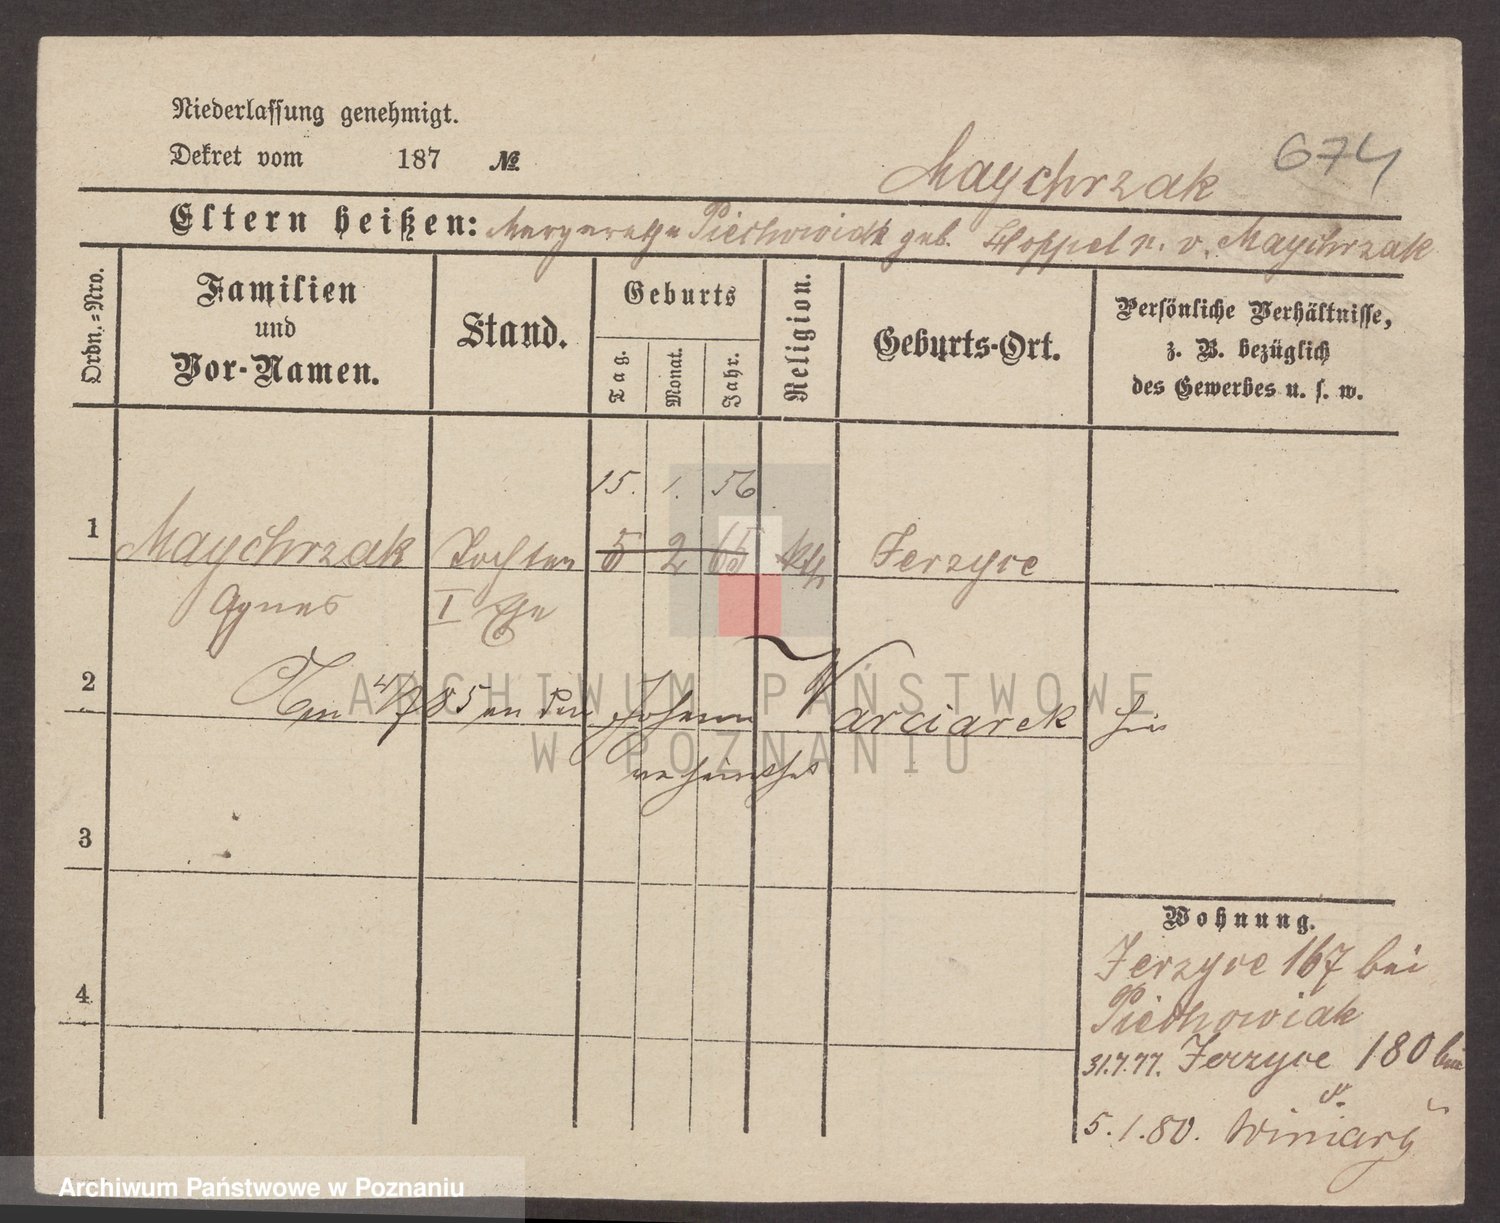 Niederlassung genehmigt.
Dekret vom 187 №
Maychrzak 674
Eltern heißen: Margarethe Piechowiak geb. Hoppel v. v. Maychrzak
Ordn.-Nro.
Familien und Vor-Namen.
Stand.
Geburts
Tag. Monat. Jahr.
Religion.
Geburts-Ort.
Persönliche Verhältnisse,
z. B. bezüglich
des Gewerbes u. s. w.
15. 1. 56
1 Maychrzak Tochter 5 2 65 kth Jerzyce
Agnes I Ehe
2 Am 4/7 85 an den Johann Warciarek hier
verheirathet
3
4
Wohnung.
Jerzyce 167 bei
Piechowiak
31.7.77. Jerzyce 180 bei
5.1.80. Winiary
ARCHIWUM PAŃSTWOWE
W POZNANIU
Archiwum Państwowe w Poznaniu